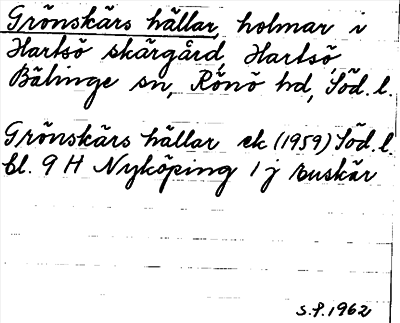 Grönskärs hällar, holmar i
Hartsö skärgård, Hartsö,
Bälinge sn, Rönö hd, Söd. l.
Grönskärs hällar ek (1959) Söd. l.
bl. 9 H Nyköping 1 j Enskär
S.P. 1962